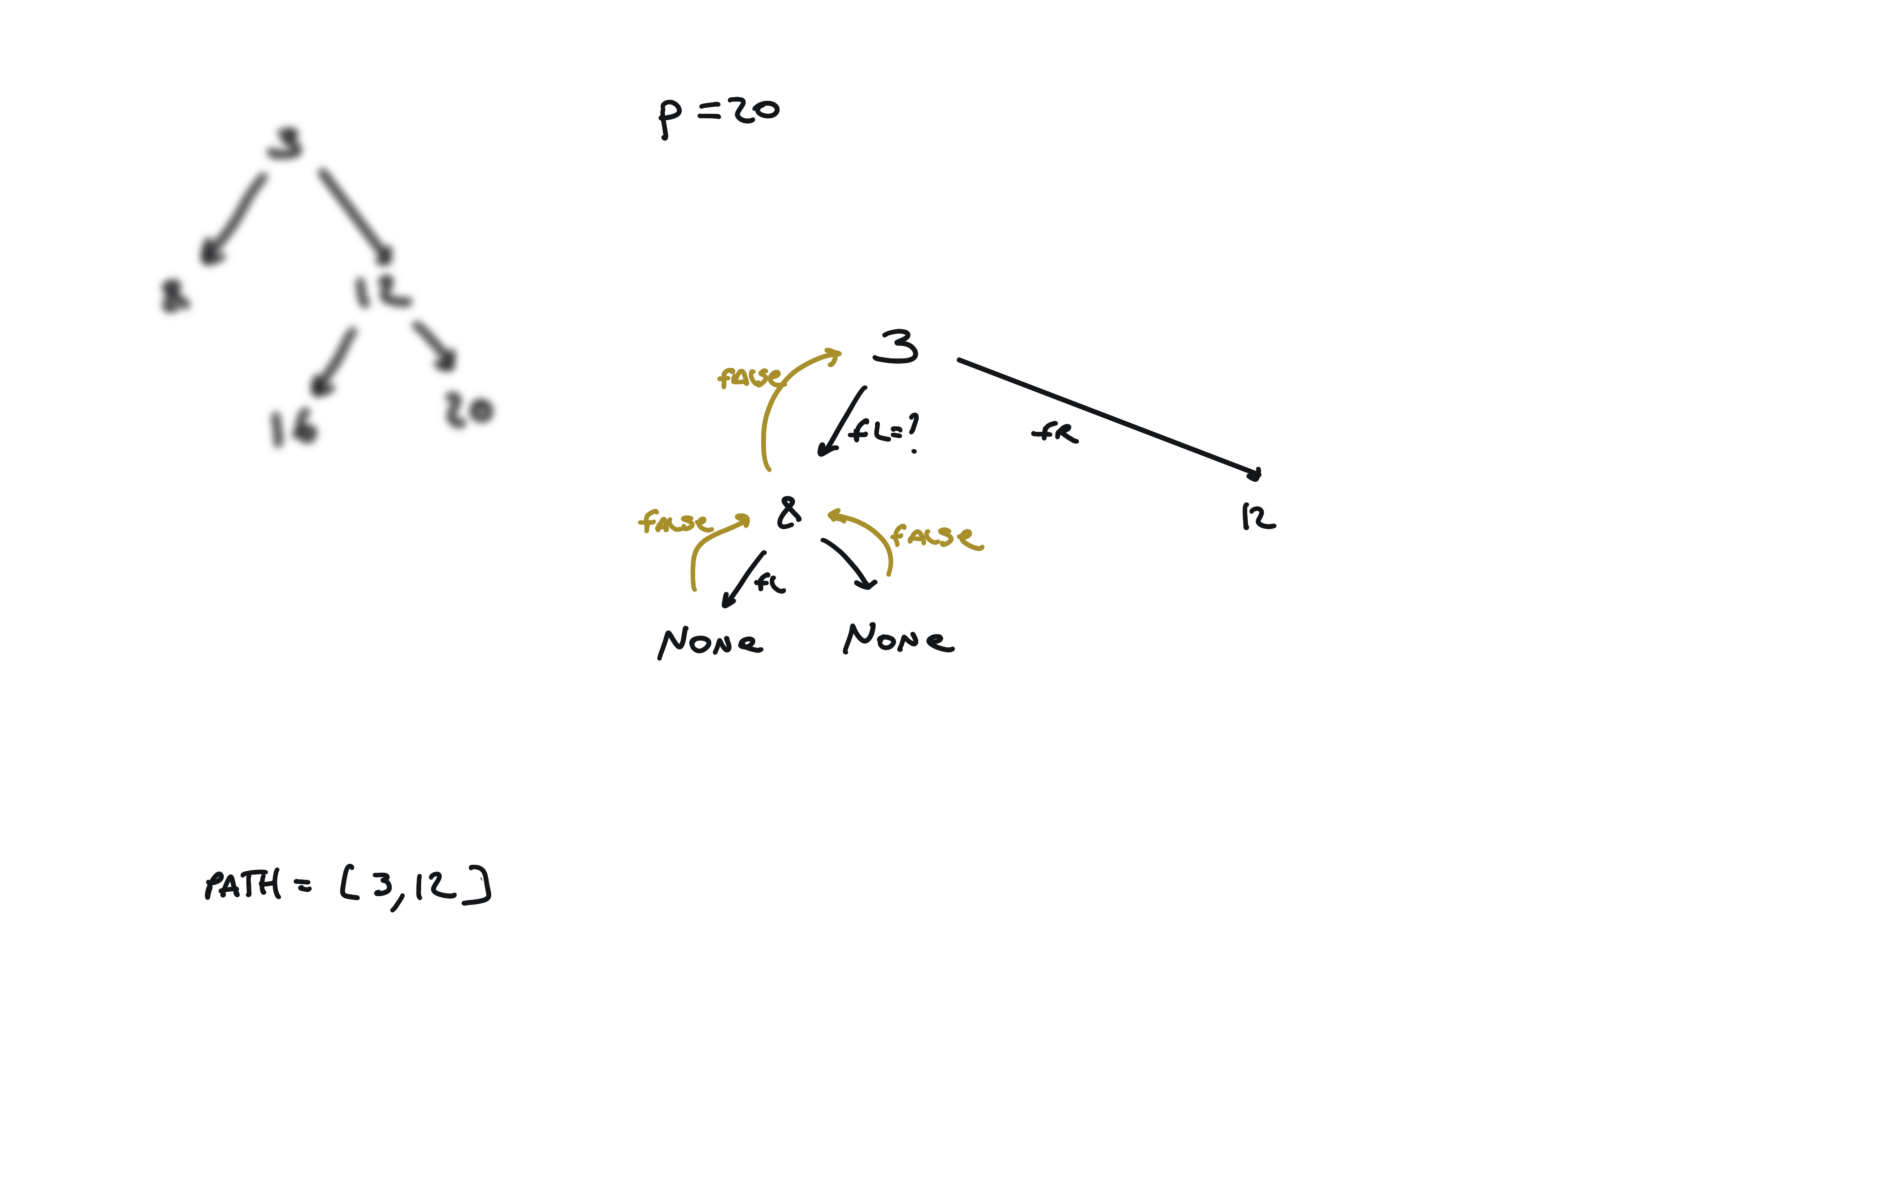 p = 20
3
8
12
16
20
3
false
fL = ?
fR
8
12
false
false
fL
None
None
PATH = [3, 12]